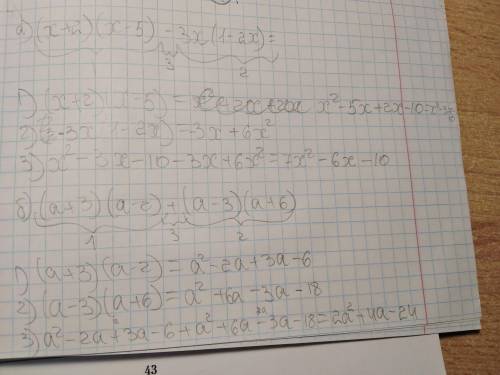 а) (x+2)(x-5) - 3x(1-2x) =
3 2
1) (x+2)(x-5) = x²-5x+2x-10=x²-3x-10
2) -3x(1-2x) = -3x+6x²
3) x²-3x-10-3x+6x²=7x²-6x-10
б) (a+3)(a-2)+(a-3)(a+6)
1 3 2
1) (a+3)(a-2)=a²-2a+3a-6
2) (a-3)(a+6)=a²+6a-3a-18
3) a²-2a+3a-6+a²+6a-3a-18=2a²+4a-24
43